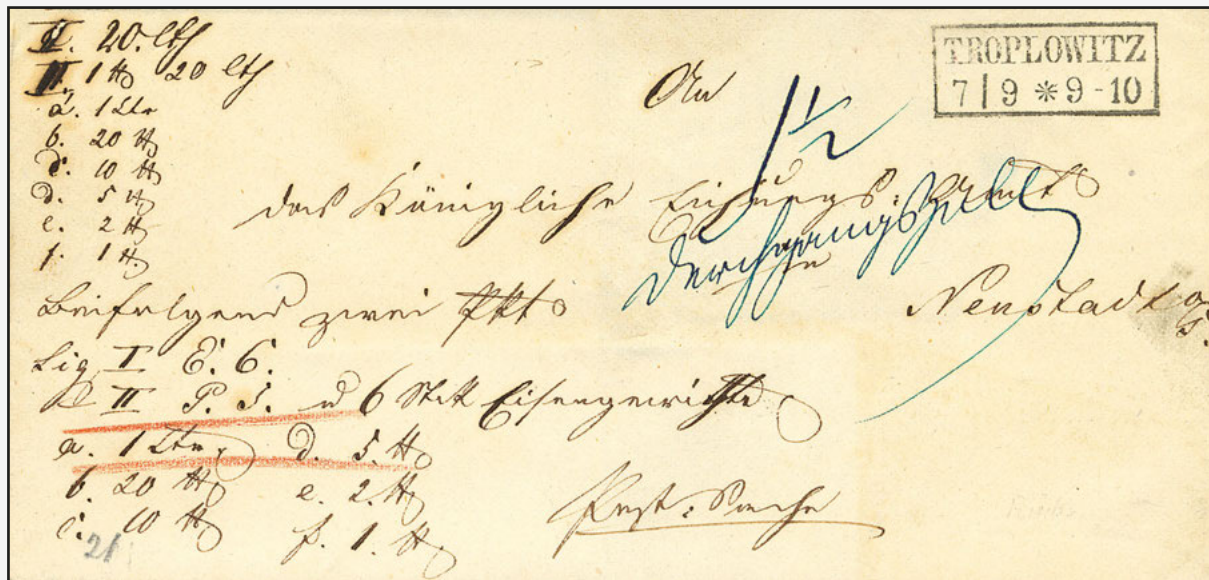 I. 20. Lth
II. 1 ℔ 20 Lth
a. 1 Ctr
b. 20 ℔
c. 10 ℔
d. 5 ℔
e. 2 ℔
f. 1 ℔
TROPLOWITZ
7 | 9 * 9-10
An
1 1/2
das Königliche Eichungs-Amt
Durchgangszoll
zu
Neustadt
Beifolgend zwei Pkt
Sig. I E. C.
II P. S. u 6 Stck Eisengewichte
a. 1 Ctr d. 5. ℔
b. 20 ℔ e. 2. ℔
c. 10 ℔ f. 1. ℔
21
Post-Sache